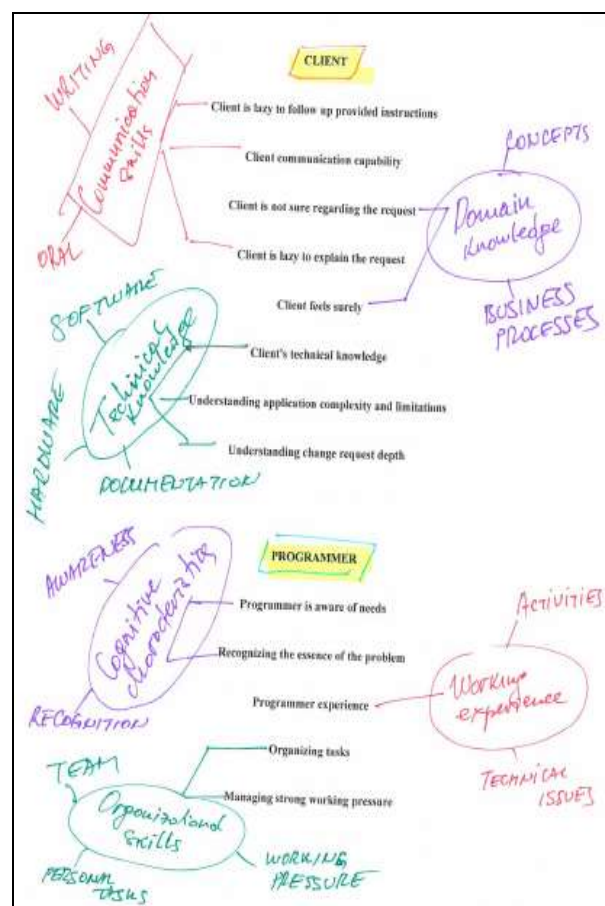 CLIENT
WRITING
Communication
Skills
ORAL
Client is lazy to follow up provided instructions
Client communication capability
Client is not sure regarding the request
Client is lazy to explain the request
Client feels surely
CONCEPTS
Domain
knowledge
BUSINESS
PROCESSES
SOFTWARE
Technical
knowledge
HARDWARE
DOCUMENTATION
Client's technical knowledge
Understanding application complexity and limitations
Understanding change request depth
PROGRAMMER
AWARENESS
Cognitive
characteristics
RECOGNITION
Programmer is aware of needs
Recognizing the essence of the problem
Programmer experience
Organizing tasks
Managing strong working pressure
ACTIVITIES
Working
experience
TECHNICAL
ISSUES
TEAM
Organizational
skills
PERSONAL
TASKS
WORKING
PRESSURE